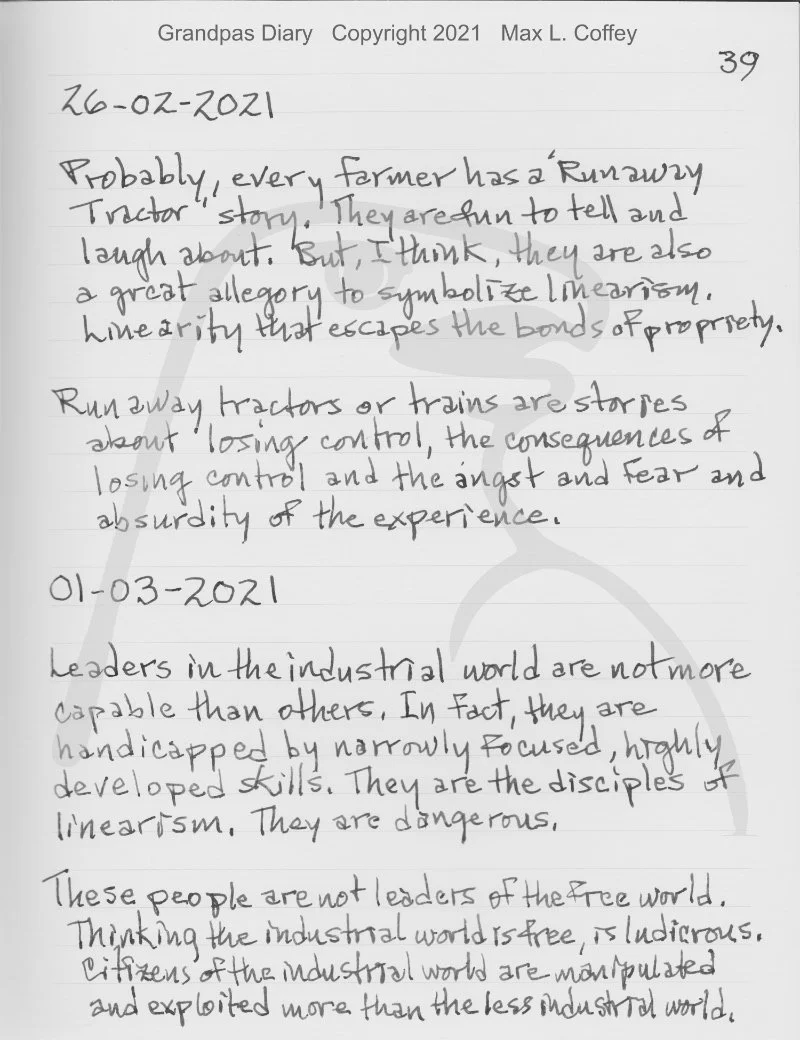 Grandpas Diary Copyright 2021 Max L. Coffey
39
26-02-2021
Probably, every farmer has a "Runaway
Tractor" story. They are fun to tell and
laugh about. But, I think, they are also
a great allegory to symbolize linearism.
Linearity that escapes the bonds of propriety.
Runaway tractors or trains are stories
about losing control, the consequences of
losing control and the angst and fear and
absurdity of the experience.
01-03-2021
Leaders in the industrial world are not more
capable than others. In fact, they are
handicapped by narrowly focused, highly
developed skills. They are the disciples of
linearism. They are dangerous.
These people are not leaders of the free world.
Thinking the industrial world is free, is ludicrous.
Citizens of the industrial world are manipulated
and exploited more than the less industrial world.